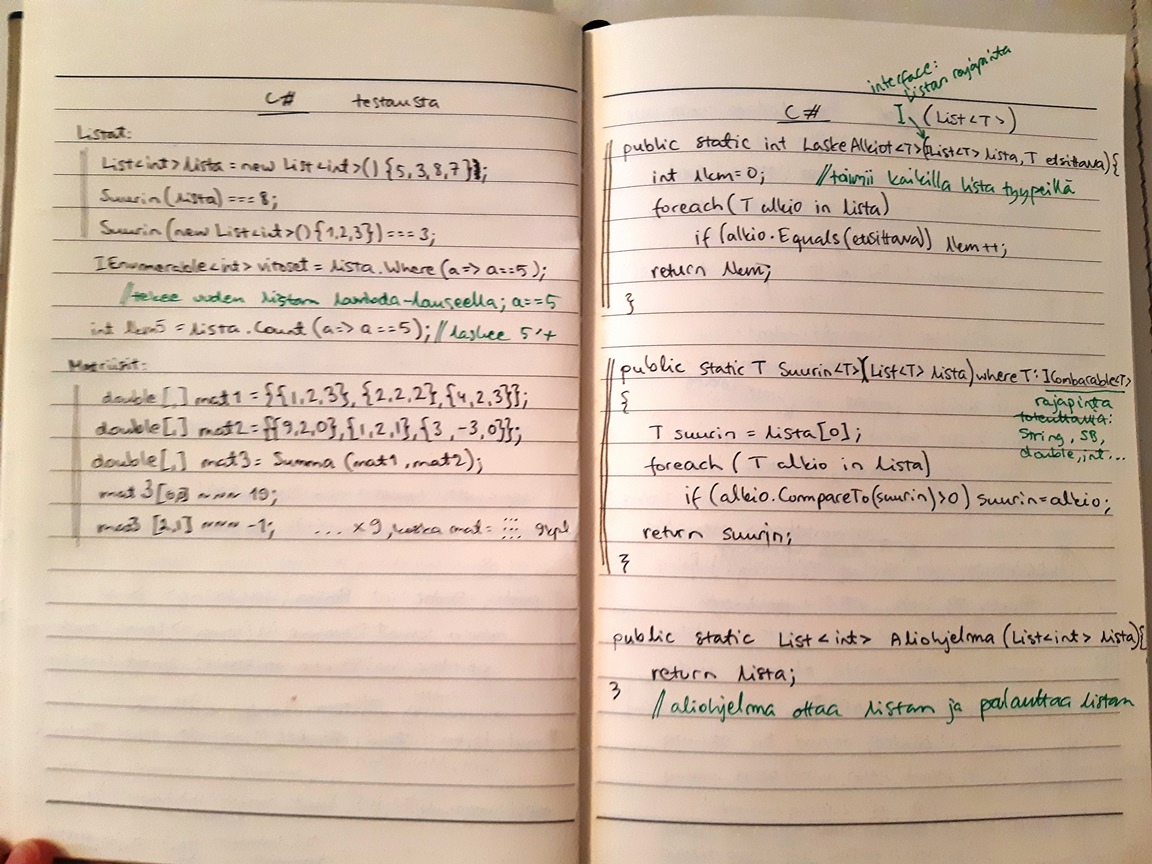 C# testausta
Listat:
List<int> lista = new List<int>() {5,3,8,7};
Suurin(lista) === 8;
Suurin(new List<int>(){1,2,3}) === 3;
IEnumerable<int> vitoset = lista.Where(a=> a==5);
//tekee uuden listan lambda-lauseella; a==5
int lkm5 = lista.Count(a=> a==5); //laskee 5:t
Matriisit:
double[,] mat1 = {{1,2,3},{2,2,2},{4,2,3}};
double[,] mat2 = {{9,2,0},{1,2,1},{3,-3,0}};
double[,] mat3 = Summa(mat1,mat2);
mat3 ~~~ 10;
mat3 [2,1] ~~~ -1; ... x9, koska mat= ::: 9kpl
interface:
Listan rajapinta
C# I (List<T>)
public static int LaskeAlkiot<T>(List<T> lista, T etsittava){
int lkm=0; //toimii kaikilla lista tyypeillä
foreach(T alkio in lista)
if (alkio.Equals(etsittava)) lkm++;
return lkm;
}
public static T Suurin<T>(List<T> lista) where T: IComparable<T>
{ rajapinta
String, SB,
T suurin = lista[0]; double, int...
foreach (T alkio in lista)
if (alkio.CompareTo(suurin)>0) suurin=alkio;
return suurin;
}
public static List<int> Aliohjelma (List<int> lista){
return lista;
}
//aliohjelma ottaa listan ja palauttaa listan